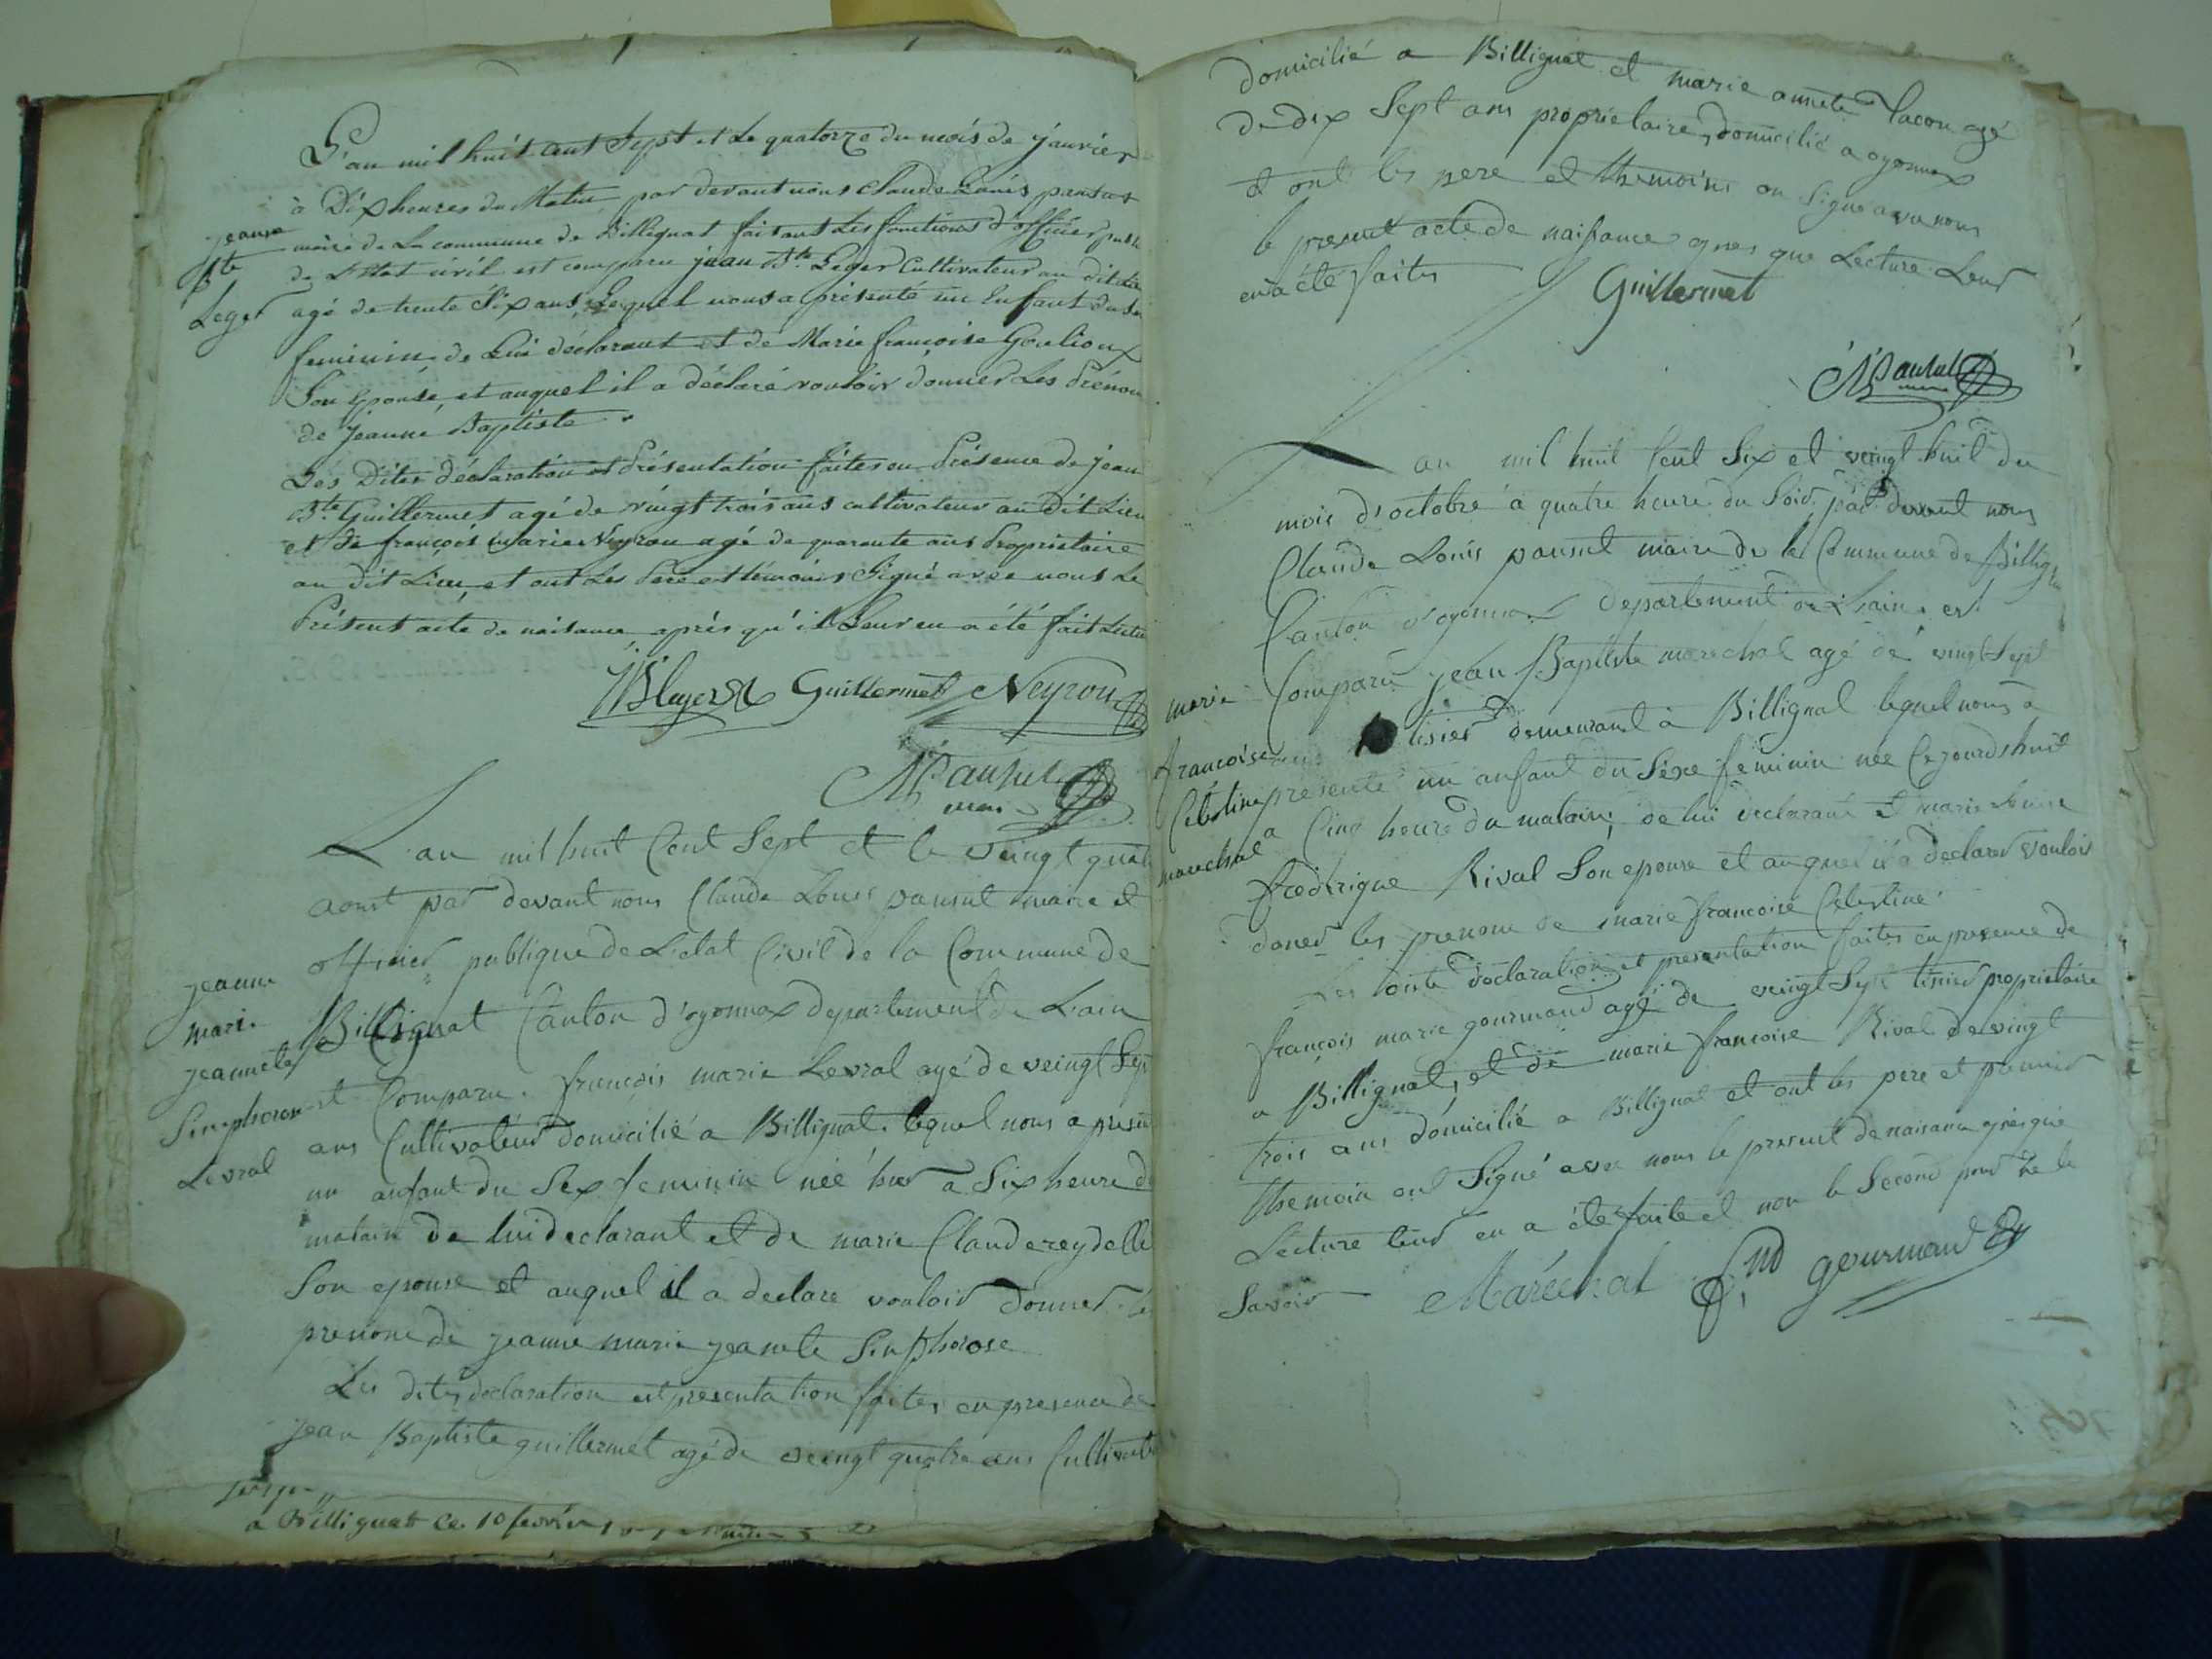 L'an mil huit cent Sept et Le quatorze du mois de janvier
à Dix heures du Matin par devant nous Claude Louis pansut
maire de La commune de Billignat faisant Les fonctions d'officier
de L'état civil est comparu jean Bte Leger Cultivateur au dit
agé de trente Six ans, Lequel nous a présenté un Enfant du
feminin de Lui déclarant et de Marie françoise Goulioux
Son Epouse, et auquel il a déclaré vouloir donner Les Prénom
de jeanne Baptiste
jeanne
Bte
Leger
Les Dites déclaration et Présentation faites en Présence de jean
Bte Guillermet agé de vingt trois ans cultivateur au Dit Lieu
et de françois marie Neyrou agé de quarante ans Propriétaire
au dit Lieu, et ont Les Pere et témoins Signé avec nous Le
Présent acte de naissance après qu'il Leur en a été fait
JB Leger Guillermet Neyrou
Pansut
maire
L'an mil huit Cent Sept et le veingt
aoust par devant nous Claude Louis pansut maire et
officier publique de L'etat Civil de la Commune de
Billignat Canton d'oyonnax departement de L'ain
est Comparu françois marie Levral agé de veingt Sept
ans Cultivateur domicilié a Billignat lequel nous a
un anfant du Sex feminin née hier a Six heure
matain de lui declarant et de marie Claude
Son epouse et auquel il a declare vouloir donner
prenom de jeanne marie jeanete Sinphorose
jeanne
marie
jeannete
Levral
Les dites declaration et presentation faites en presence de
jean Baptiste guillermet agé de veingt quatre ans
à Billignat Ce 10 fevrier
domicilié a Billignat et marie annete agé
de dix Sept ans propriétaire domicilié a oyonnax
et ont les pere et themoins Signe nous
le present acte de naissance apres que Lecture Leur
en a été faites
Guillermet
Pansut
L'an mil huit Cent Six et veingt huit du
mois d'octobre a quatre heure du Soir par devant nous
Claude Louis pansut maire de la Commune de
Canton d'oyonnax departement de L'ain est
Comparu jean Baptiste marechal agé de veingt Sept
ans tisier demeurant à Billignat lequel nous a
presenté un anfant du Sexe feminin née Ce jourd'huit
a Cinq heure du matain, de lui declarant et marie
frederique Rival Son epouse et auquel il a declarer vouloir
doner les prenom de marie francoise Celestine
marie
francoise
Celestine
marechal
Les dite declaration et presentation faites en presence de
françois marie gourmand agé de veingt Sept tisier propriétaire
a Billignat, et de marie francoise Rival de vingt
trois ans domicilié a Billignat et ont les pere et premier
themoin ont Signé avec nous le present de naisance apres que
Lecture leur en a été faite et non le Second pour ne le
Savoir Maréchal gourmand